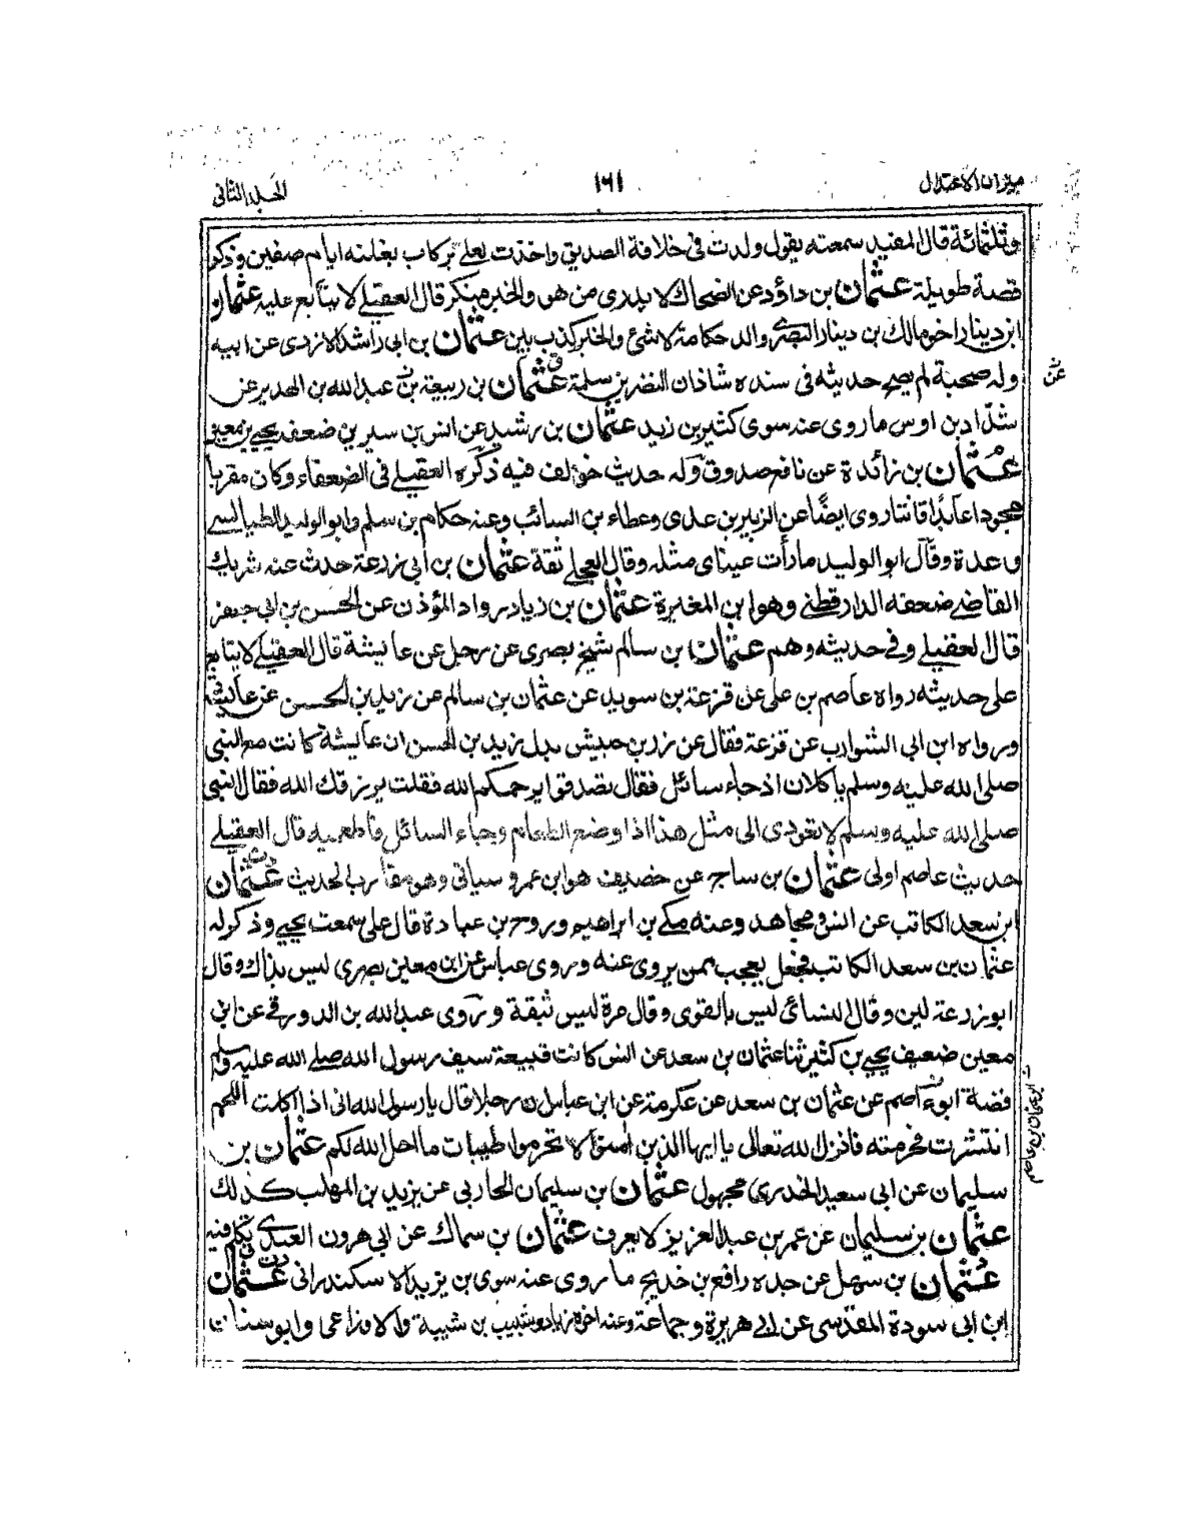 ميزان الاعتدال
١٦١
المجلد الثاني
وثلثمائة قال المفيد سمعته يقول ولدت في خلافة الصديق واخذت لعلي بركاب بغلته ايام صفين وذكر
قصة طويلة عثمان بن داؤد عن الضحاك لا يدرى من هو والخبر منكر قال العقيلي لا يتابع عليه عثمان
ابن دينار اخو مالك بن دينار البصري والد حكامة لا شئ والخبر كذب بين عثمان بن ابي راشد الازدي عن ابيه
وله صحبة لم يصح حديثه في سنده شاذان النضر بن سلمة ق عثمان بن ربيعة بن عبد الله بن الهدير عن
شداد بن اوس ما روى عنه سوى كثير بن زيد عثمان بن رشيد عن انس بن سيرين ضعفه يحيى بن معين
عثمان بن زائدة عن نافع صدوق وله حديث خولف فيه ذكره العقيلي في الضعفاء وكان مقربا
مجودا عابدا قانتا روى ايضا عن الزبير بن عدي وعطاء بن السائب وعنه حكام بن سلم وابو الوليد الطيالسي
وعدة وقال ابو الوليد ما رأت عيناى مثله وقال العجلي ثقة عثمان بن ابي زرعة حدث عنه شريك
القاضي ضعفه الدارقطني وهو ابن المغيرة عثمان بن زياد رواد المؤذن عن الحسن بن ابي جعفر
قال العقيلي وفي حديثه وهم عثمان بن سالم شيخ بصري عن رجل عن عائشة قال العقيلي لا يتابع
على حديثه رواه عاصم بن علي عن قزعة بن سويد عن عثمان بن سالم عن زيد بن الحسن عن عائشة
ورواه ابن ابي الشوارب عن قزعة فقال عن زر بن حبيش بدل زيد بن الحسن ان عائشة كانت مع النبي
صلى الله عليه وسلم ياكلان اذ جاء سائل فقال تصدقوا يرحمكم الله فقلت يرزقك الله فقال النبي
صلى الله عليه وسلم لا تعودى الى مثل هذا اذا وضع الطعام وجاء السائل فاطعميه قال العقيلي
حديث عاصم اولى عثمان بن ساج عن خصيف هو ابن عمرو سياتي وهو مقارب الحديث عثمان
ابن سعد الكاتب عن انس ومجاهد وعنه مكي بن ابراهيم وروح بن عبادة قال علي سمعت يحيى وذكر له
عثمان بن سعد الكاتب فجعل يعجب ممن يروى عنه وروى عباس عن ابن معين بصري ليس بذاك وقال
ابو زرعة لين وقال النسائي ليس بالقوى وقال مرة ليس بثقة وروى عبد الله بن الدورقي عن ابن
معين ضعيف يحيى بن كثير ثنا عثمان بن سعد عن انس كانت قبيعة سيف رسول الله صلى الله عليه وسلم
فضة ابو عاصم عن عثمان بن سعد عن عكرمة عن ابن عباس ان رجلا قال يا رسول الله اني اذا اكلت اللحم
انتشرت فحرمته فانزل الله تعالى يا ايها الذين امنوا لا تحرموا طيبات ما احل الله لكم عثمان بن
سليمان عن ابي سعيد الخدري مجهول عثمان بن سليمان الحاربي عن يزيد بن المهلب كذلك
عثمان بن سليمان عن عمر بن عبد العزيز لا يعرف عثمان بن سماك عن ابي هرون العبدي تكلم فيه
عثمان بن سهل عن جده رافع بن خديج ما روى عنه سوى بن يزيد الاسكندراني عثمان
ابن ابي سودة المقدسي عن ابي هريرة وجماعة وعنه اخوه زياد وشبيب بن شيبة والاوزاعي وابو سنان
عن